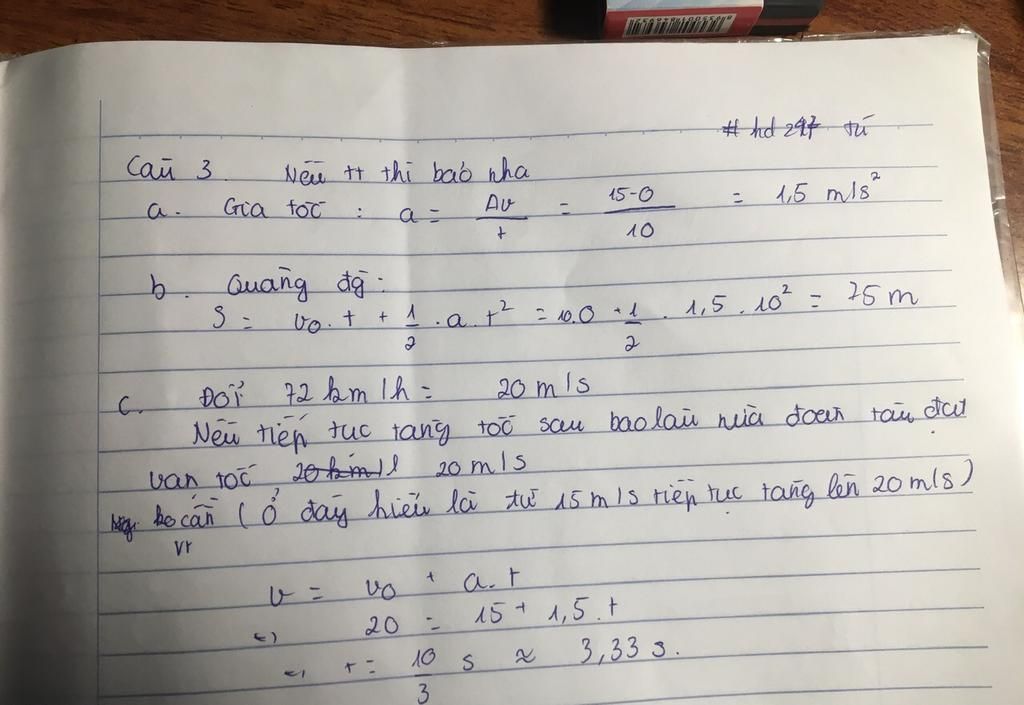 # hd 247 tú
Câu 3. Nếu tt thì báo nha
a. Gia tốc : a = Δv/t = 15-0/10 = 1,5 m/s²
b. Quãng đg:
S = v0.t + 1/2 .a.t² = 10.0 + 1/2 . 1,5 . 10² = 75 m
c. Đổi 72 km/h = 20 m/s
Nếu tiếp tục tăng tốc sau bao lâu nữa đoàn tàu đạt
vận tốc 20 km/ 20 m/s
ko cần (Ở đây hiểu là từ 15 m/s tiếp tục tăng lên 20 m/s)
v = v0 + a.t
20 = 15 + 1,5.t
t = 10/3 s ≈ 3,33 s.